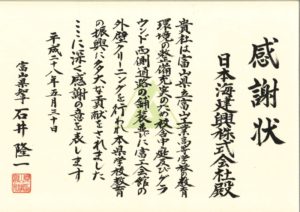 感謝状
日本海建興株式会社殿
貴社は富山県立富山工業高等学校の教育
環境の整備充実のため校舎中庭及びグラ
ウンド西側道路の舗装並びに富工会館の
外壁クリーニングを行われ本県学校教育
の振興に多大な貢献をされました
ここに深く感謝の意を表します
平成二十八年五月三十日
富山県知事 石井隆一